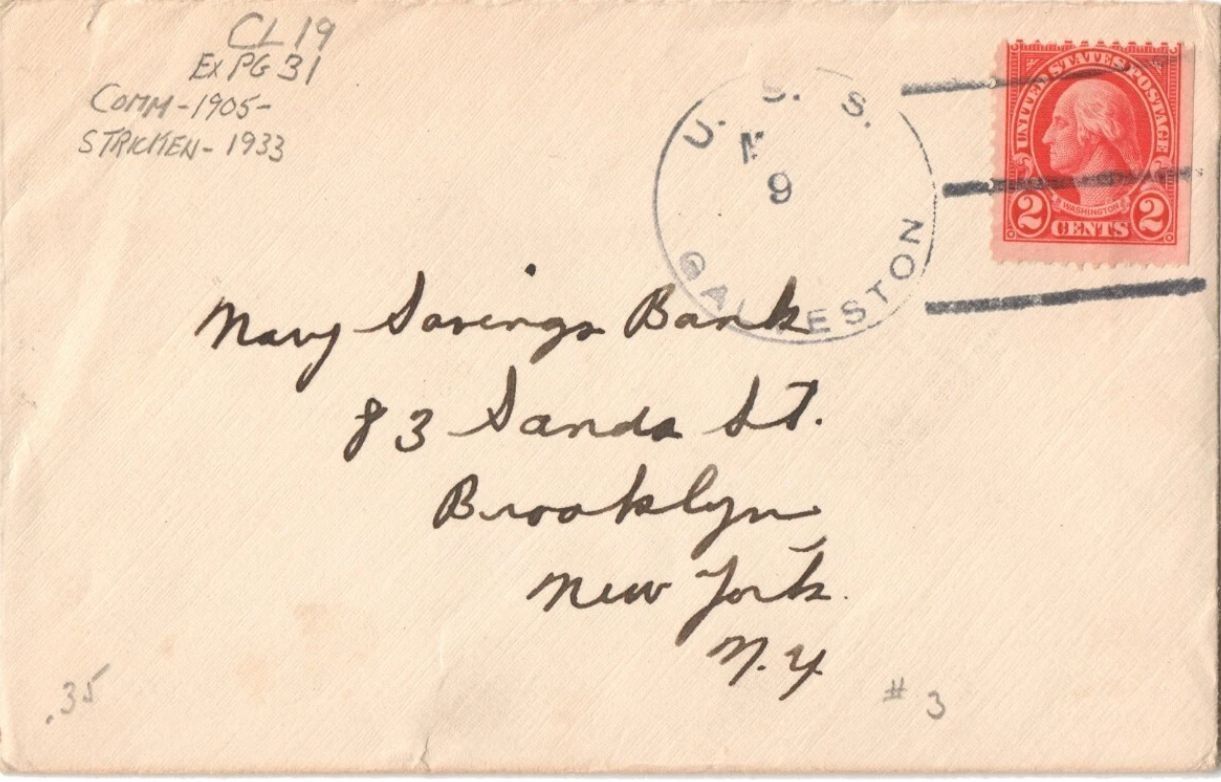 CL 19
EX PG 31
COMM-1905-
STRICKEN-1933
U. S. S.
9
GALVESTON
UNITED STATES POSTAGE
WASHINGTON
2 CENTS 2
Navy Savings Bank
83 Sands St.
Brooklyn
New York.
N.Y.
.35
# 3